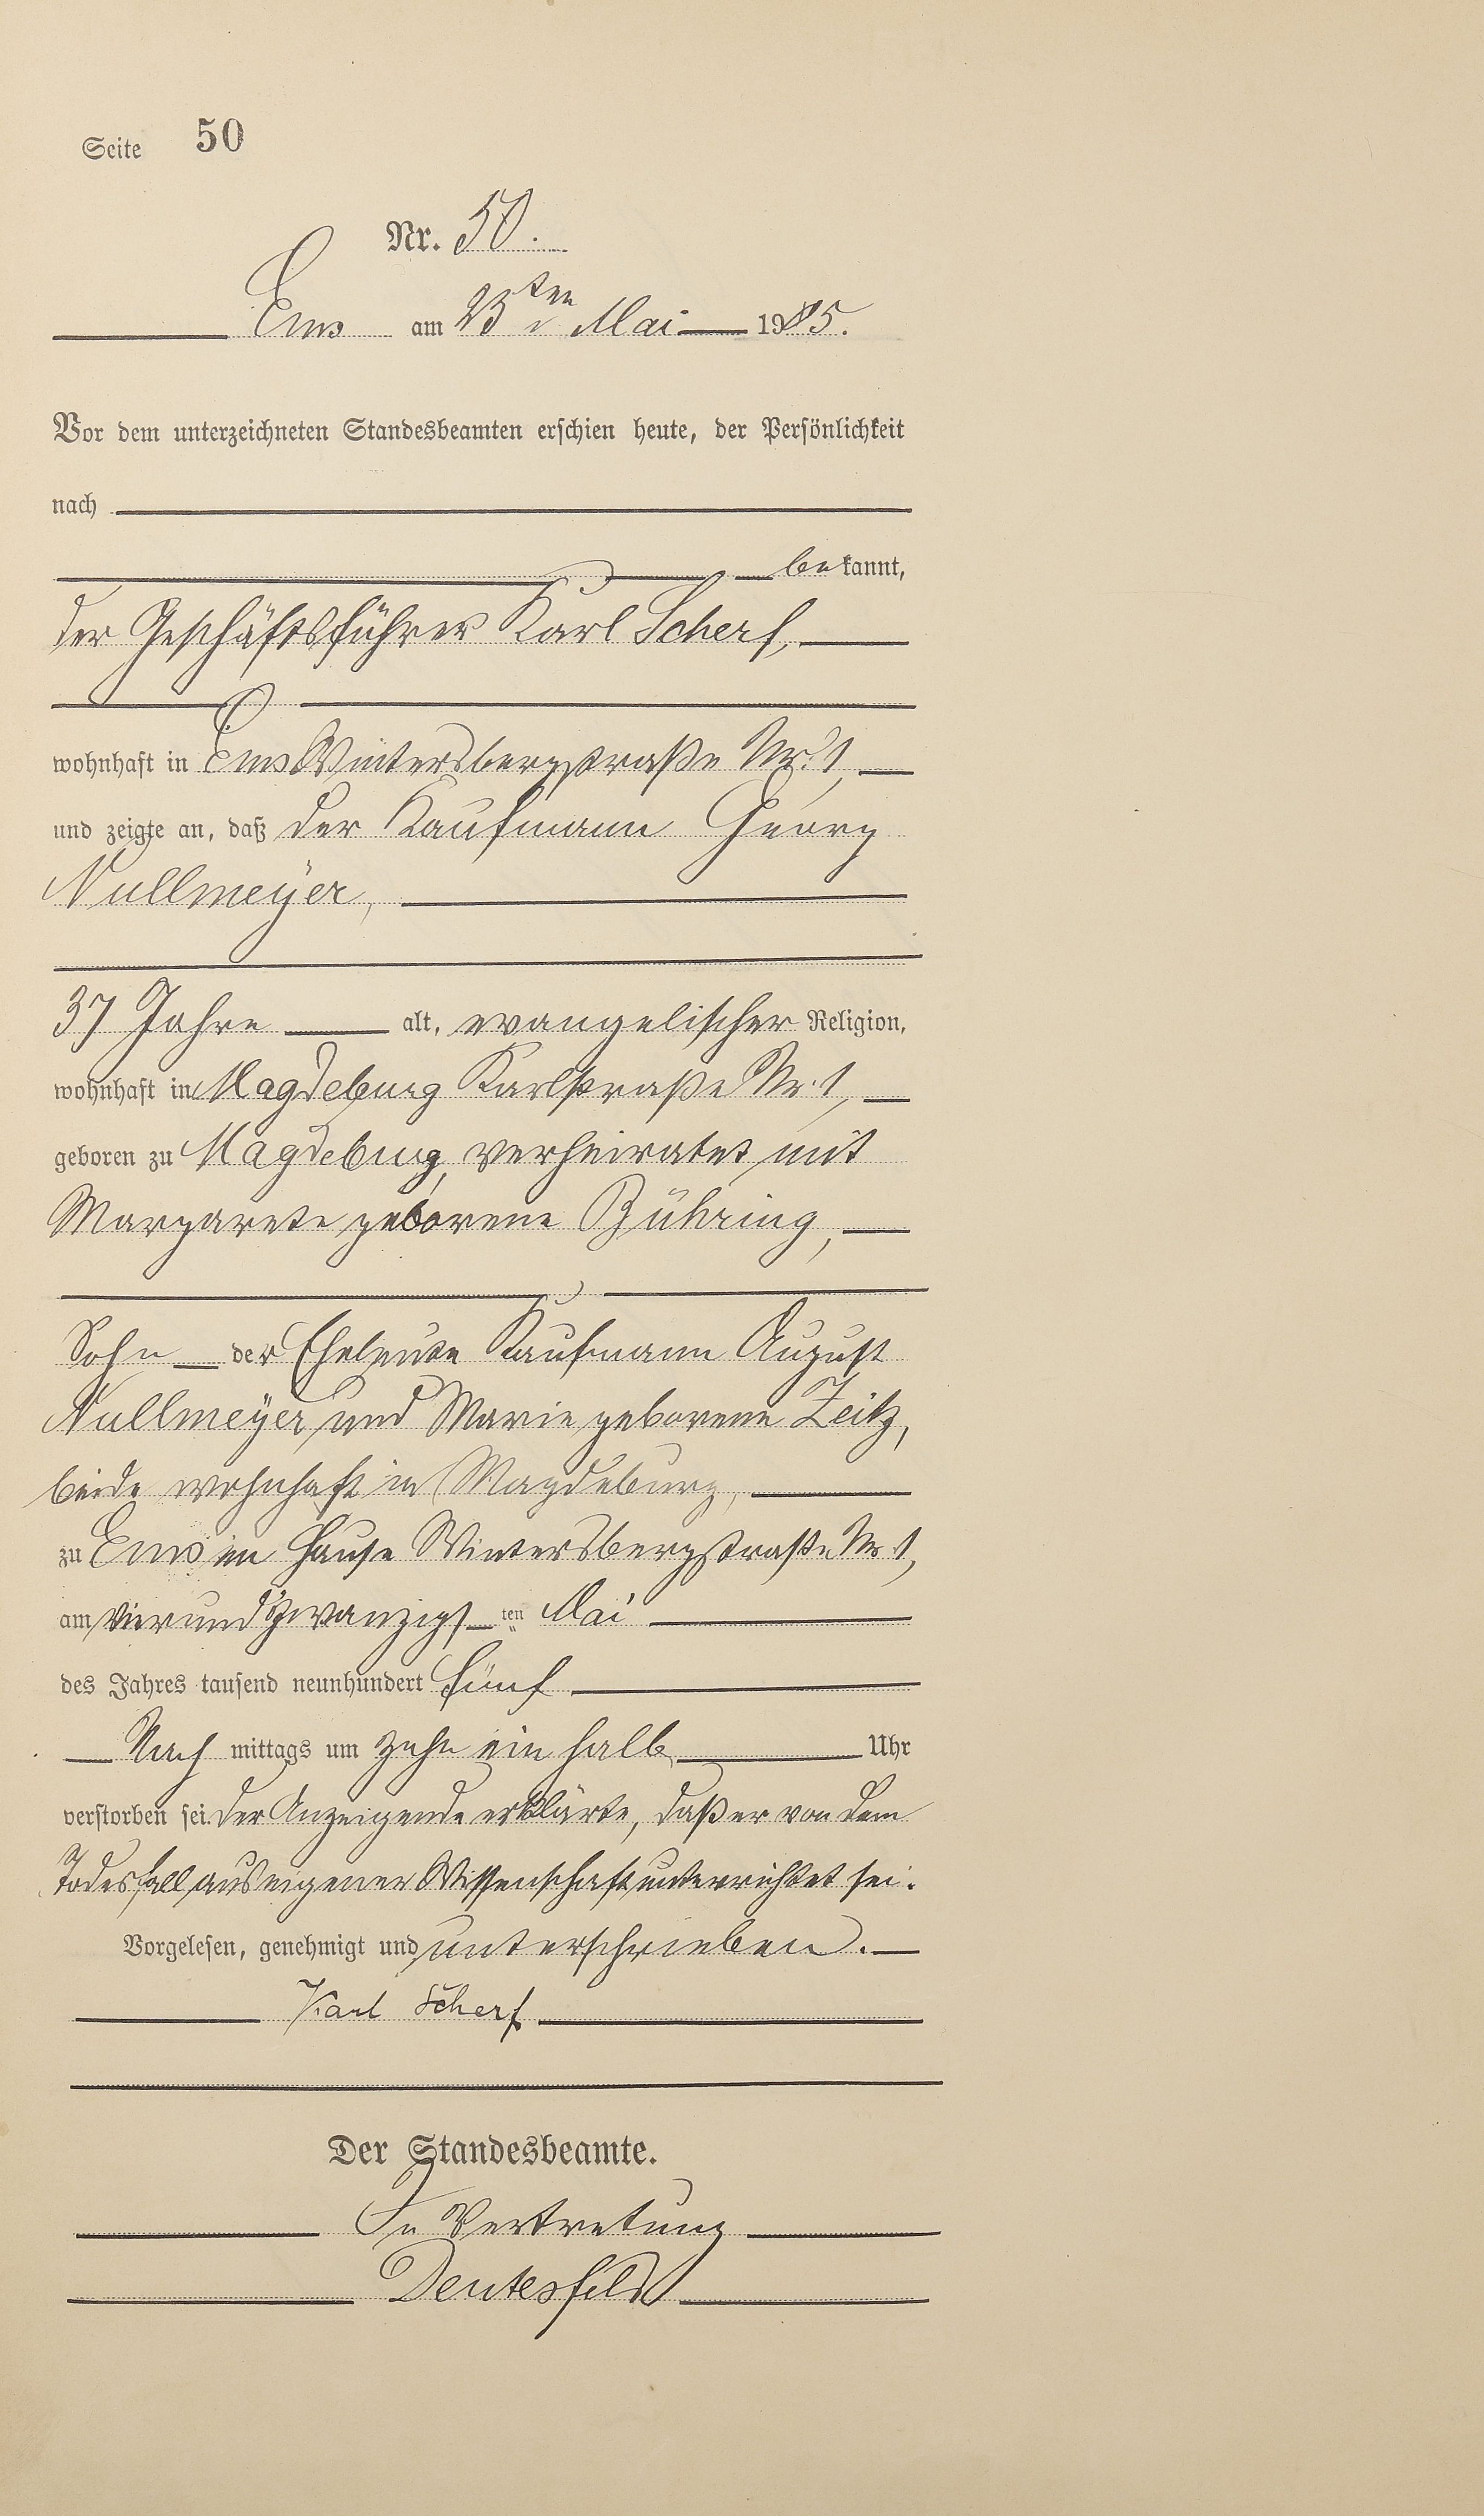 Seite 50
Nr. 50.
Ems am 25ten Mai 1905.
Vor dem unterzeichneten Standesbeamten erschien heute, der Persönlichkeit
nach
bekannt,
der Geschäftsführer Karl Scherf,
wohnhaft in Ems Wintersbergstraße Nr. 1,
und zeigte an, daß der Kaufmann Georg
Nullmeyer,
37 Jahre alt, evangelischer Religion,
wohnhaft in Magdeburg Karlstraße Nr. 1,
geboren zu Magdeburg, verheiratet mit
Margarete geborene Bühring,
Sohn der Eheleute Kaufmann August
Nullmeyer und Marie geborene Zeitz,
beide wohnhaft in Magdeburg,
zu Ems im Hause Wintersbergstraße Nr. 1,
am vierundzwanzigsten Mai
des Jahres tausend neunhundert fünf
Nachmittags um zehn ein halb Uhr
verstorben sei. Der Anzeigende erklärte, daß er von dem
Todesfall aus eigener Wissenschaft unterrichtet sei.
Vorgelesen, genehmigt und unterschrieben.
Karl Scherf
Der Standesbeamte.
In Vertretung